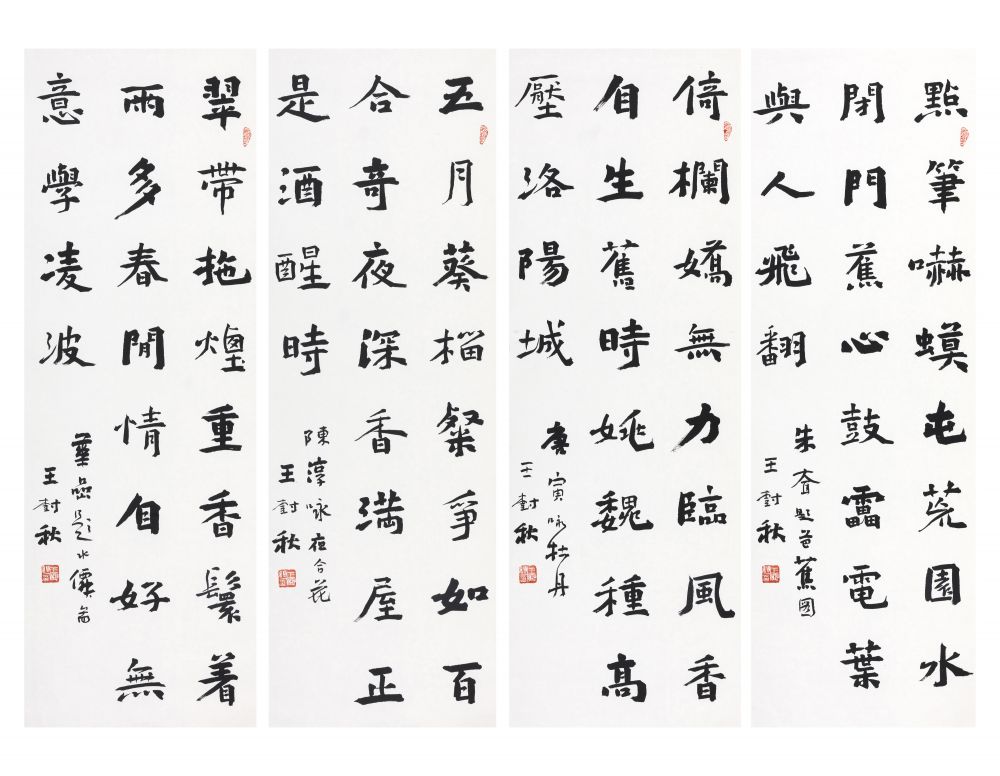 點筆嚇蟆屯荒園水
閉門蕉心鼓雷電葉
與人飛翻
朱耷題芭蕉圖
王對秋
倚欄嬌無力臨風香
自生舊時姚魏種高
壓洛陽城
唐寅咏牡丹
王對秋
五月葵榴粲爭如百
合奇夜深香満屋正
是酒醒時
陳淳咏夜合花
王對秋
翠帶拖煙重香鬟着
雨多春閒情自好無
意學凌波
華喦題水僊畣
王對秋